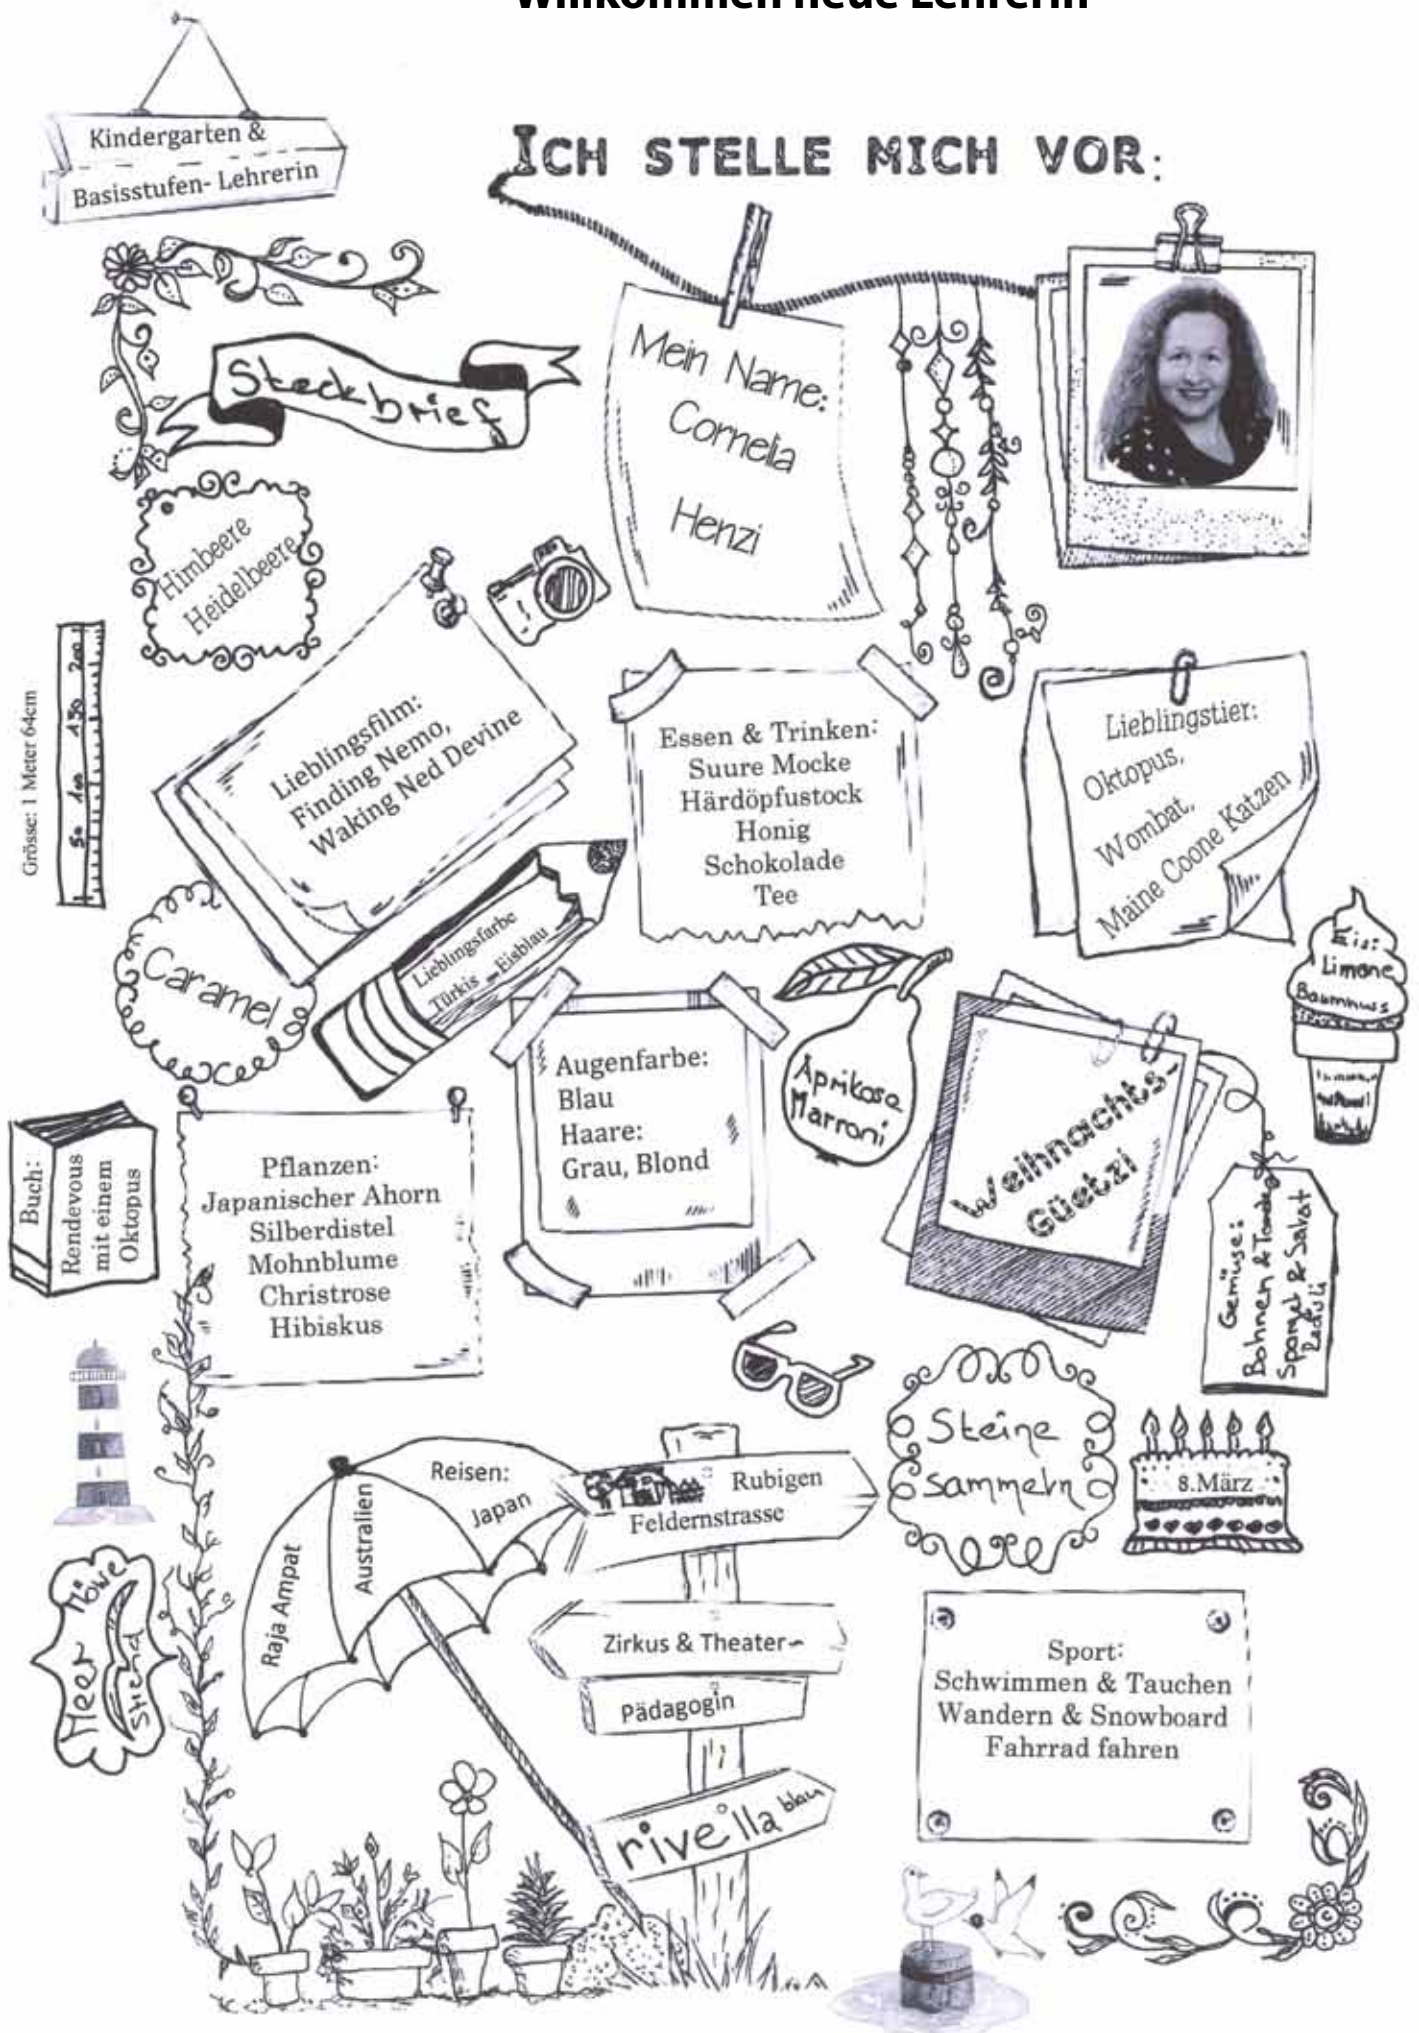 Willkommen neue Lehrerin
Kindergarten &
Basisstufen- Lehrerin
ICH STELLE MICH VOR:
Steckbrief
Mein Name:
Cornelia
Henzi
Himbeere
Heidelbeere
Grösse: 1 Meter 64cm
50 100 150 200
Lieblingsfilm:
Finding Nemo,
Waking Ned Devine
Essen & Trinken:
Suure Mocke
Härdöpfustock
Honig
Schokolade
Tee
Lieblingstier:
Oktopus,
Wombat,
Maine Coone Katzen
Caramel
Lieblingsfarbe
Türkis - Eisblau
Eis:
Limone
Baumnuss
Augenfarbe:
Blau
Haare:
Grau, Blond
Aprikose
Marroni
Weihnachts-
Güetzi
Buch:
Rendevous
mit einem
Oktopus
Pflanzen:
Japanischer Ahorn
Silberdistel
Mohnblume
Christrose
Hibiskus
Gemüse:
Bohnen &
Spargel & Salat
Radisli
Steine
sammeln
8.März
Reisen:
Japan
Australien
Raja Ampat
Rubigen
Feldernstrasse
Zirkus & Theater-
Pädagogin
rivella blau
Möwe
Meer
Strand
Sport:
Schwimmen & Tauchen
Wandern & Snowboard
Fahrrad fahren